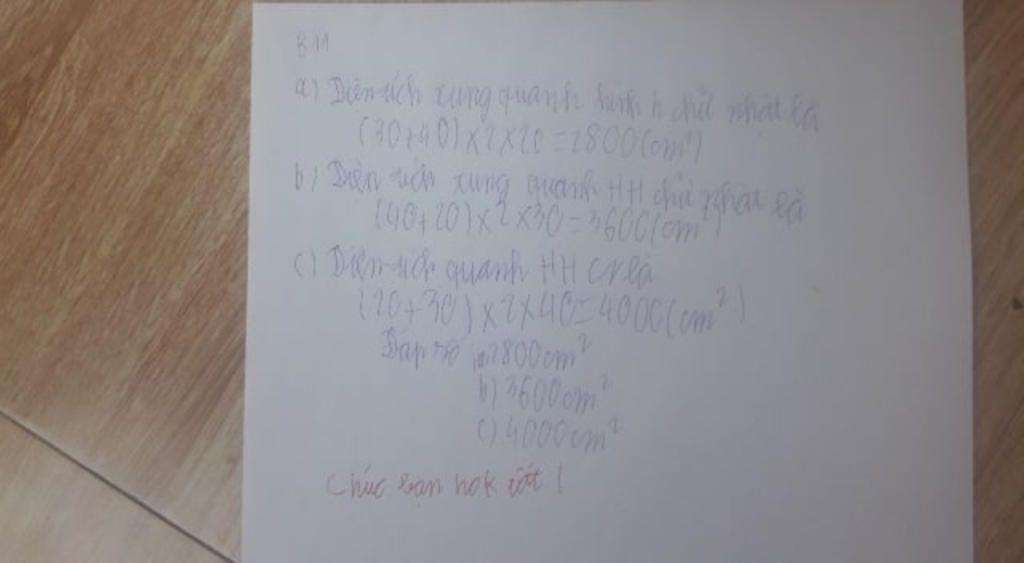 B11
a) Diện tích xung quanh hình h chữ nhật là
(30+40)×2×20=2800(cm²)
b) Diện tích xung quanh HH chữ nhật là
(40+20)×2×30=3600(cm²)
c) Diện tích quanh HH CN là
(20+30)×2×40=4000(cm²)
Đáp số a)2800cm²
b)3600cm²
c)4000cm²
Chúc bạn hok tốt!